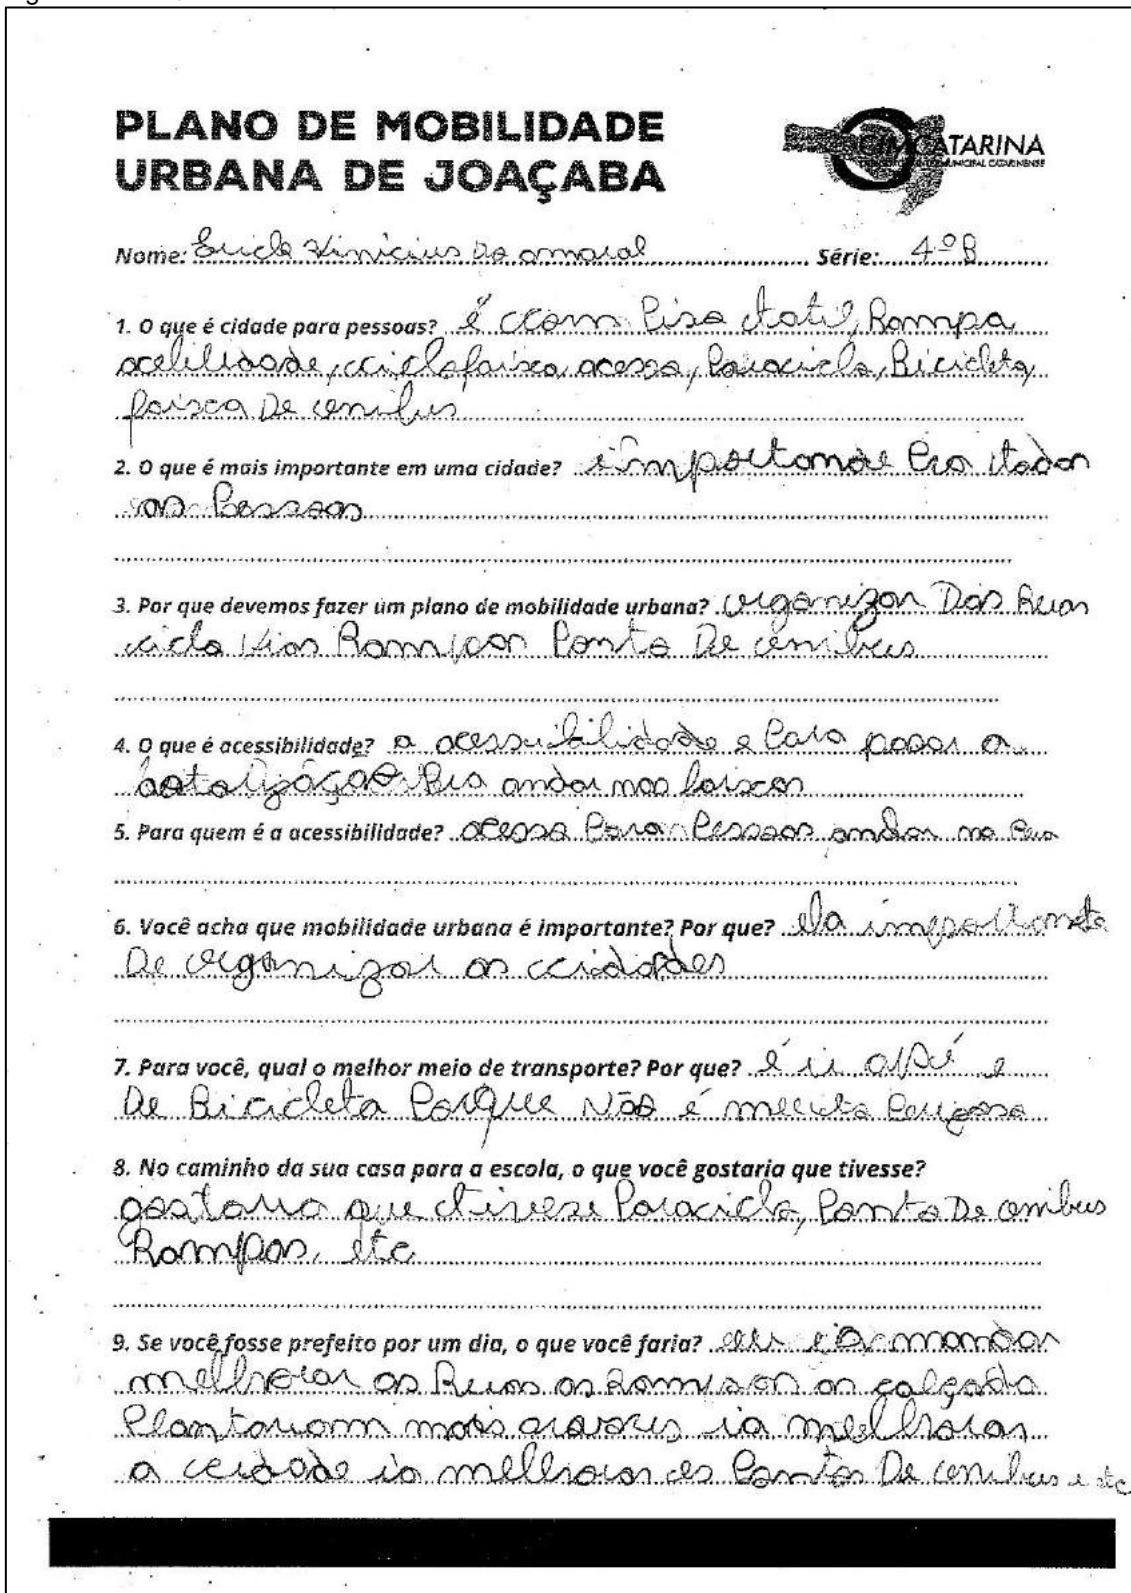 PLANO DE MOBILIDADE
URBANA DE JOAÇABA
CIMCATARINA
Nome: Erick Vinicius do amaral Série: 4ºB
1. O que é cidade para pessoas? é com Piso tatil, Rampa
acelilidade, ciclofaixa, acesso, Paraciclo, Bicicleta,
faixa De onibus
2. O que é mais importante em uma cidade? importande Pra todas
as Pessoas
3. Por que devemos fazer um plano de mobilidade urbana? organizar Das Ruas
ciclo Vias Rampas Ponto De onibus
4. O que é acessibilidade? a acessibilidade e Para
andar nas faixas
5. Para quem é a acessibilidade? acesso Para Pessoas andar na Rua
6. Você acha que mobilidade urbana é importante? Por que? ela importante
De organizar as cidades
7. Para você, qual o melhor meio de transporte? Por que? é ir apé e
De Bicicleta Porque Não é muito Perigoso
8. No caminho da sua casa para a escola, o que você gostaria que tivesse?
gostaria que tivese Paraciclo, Ponto De onibus
Rampas, etc
9. Se você fosse prefeito por um dia, o que você faria? eu ia mandar
melhorar as Ruas as Rampas as calçada
Plantariam mais arvores ia melhorar
a cidade ia melhorar os Pontos De onibus e etc